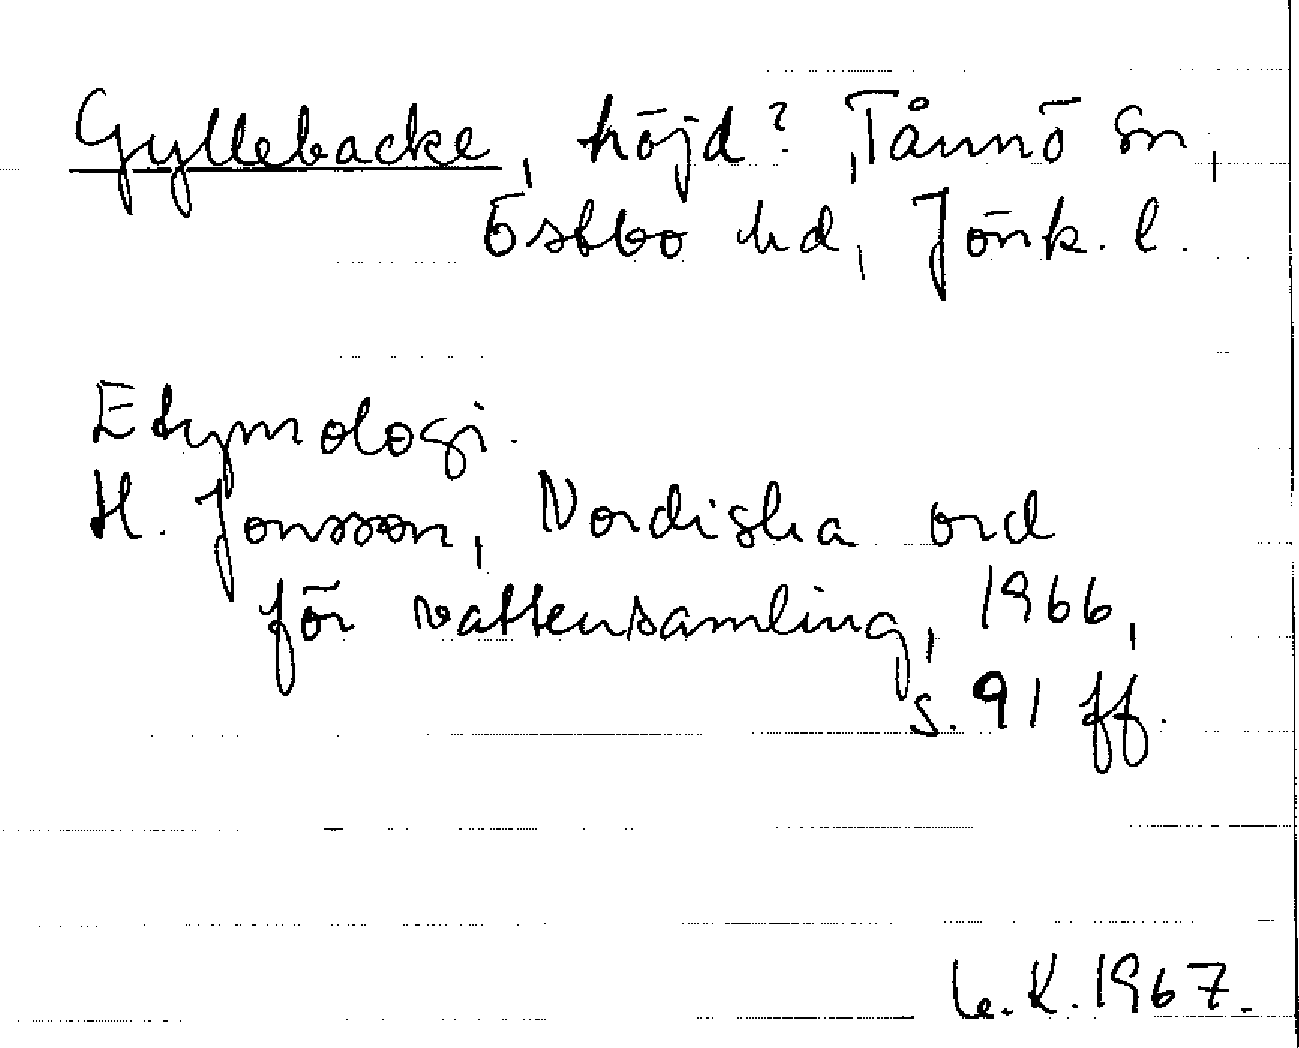 Gyllebacke, höjd?, Tånnö sn,
Östbo hd, Jönk. l.
Etymologi.
H. Jonsson, Nordiska ord
för vattensamling, 1966,
s. 91 ff.
Le. K. 1967.